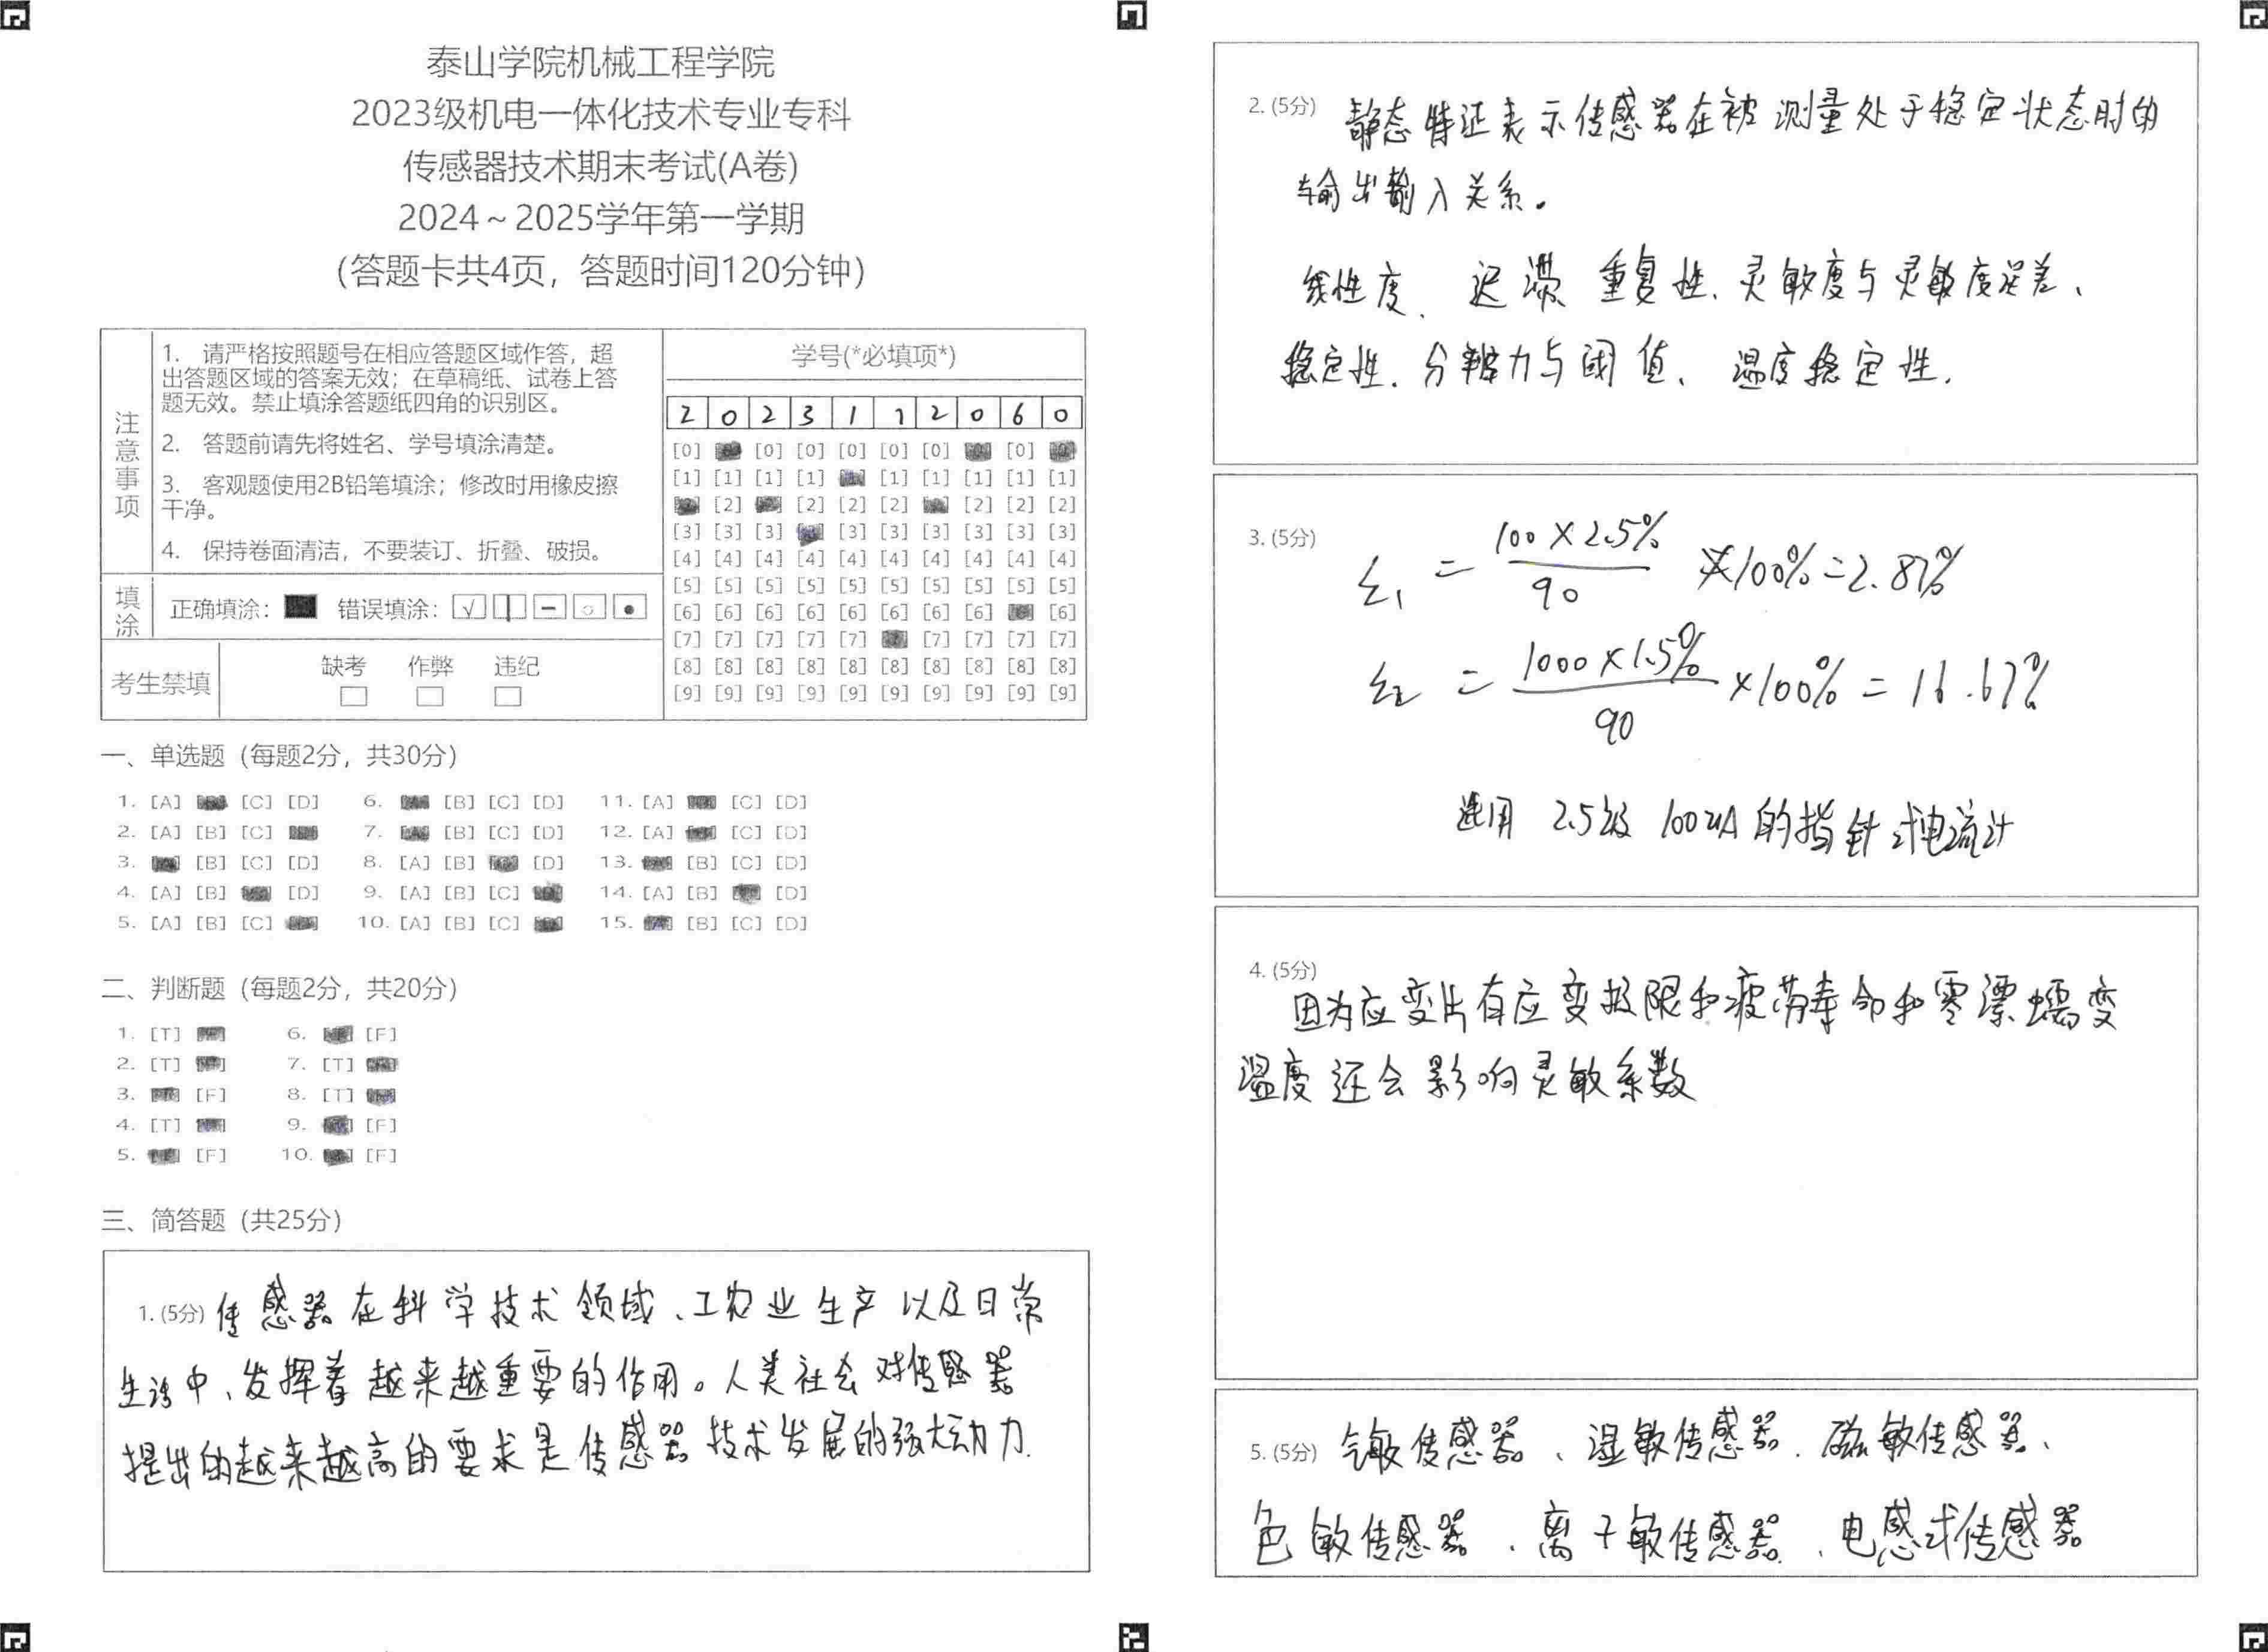 泰山学院机械工程学院
2023级机电一体化技术专业专科
传感器技术期末考试(A卷)
2024～2025学年第一学期
(答题卡共4页，答题时间120分钟)
注意事项
1. 请严格按照题号在相应答题区域作答，超
出答题区域的答案无效；在草稿纸、试卷上答
题无效。禁止填涂答题纸四角的识别区。
2. 答题前请先将姓名、学号填涂清楚。
3. 客观题使用2B铅笔填涂；修改时用橡皮擦
干净。
4. 保持卷面清洁，不要装订、折叠、破损。
填涂
正确填涂： 错误填涂：
考生禁填
缺考 作弊 违纪
学号(*必填项*)
2 0 2 3 1 7 2 0 6 0
[0] [0] [0] [0] [0] [0] [0]
[1] [1] [1] [1] [1] [1] [1] [1] [1]
[2] [2] [2] [2] [2] [2] [2]
[3] [3] [3] [3] [3] [3] [3] [3] [3]
[4] [4] [4] [4] [4] [4] [4] [4] [4] [4]
[5] [5] [5] [5] [5] [5] [5] [5] [5] [5]
[6] [6] [6] [6] [6] [6] [6] [6] [6]
[7] [7] [7] [7] [7] [7] [7] [7] [7]
[8] [8] [8] [8] [8] [8] [8] [8] [8] [8]
[9] [9] [9] [9] [9] [9] [9] [9] [9] [9]
一、单选题（每题2分，共30分）
1. [A] [C] [D] 6. [B] [C] [D] 11. [A] [C] [D]
2. [A] [B] [C] 7. [B] [C] [D] 12. [A] [C] [D]
3. [B] [C] [D] 8. [A] [B] [D] 13. [B] [C] [D]
4. [A] [B] [D] 9. [A] [B] [C] 14. [A] [B] [D]
5. [A] [B] [C] 10. [A] [B] [C] 15. [B] [C] [D]
二、判断题（每题2分，共20分）
1. [T] 6. [F]
2. [T] 7. [T]
3. [F] 8. [T]
4. [T] 9. [F]
5. [F] 10. [F]
三、简答题（共25分）
1. (5分) 传感器在科学技术领域、工农业生产以及日常
生活中、发挥着越来越重要的作用。人类社会对传感器
提出的越来越高的要求是传感器技术发展的强大动力.
2. (5分) 静态特征表示传感器在被测量处于稳定状态时的
输出输入关系。
线性度、迟滞 重复性、灵敏度与灵敏度误差、
稳定性、分辨力与阈值、温度稳定性.
3. (5分) ε₁ = 100×2.5% / 90 ×100%=2.87%
ε₂ = 1000×1.5% / 90 ×100% = 16.67%
选用 2.5级 100uA的指针式电流计
4. (5分)
因为应变片有应变极限和疲劳寿命和零漂蠕变
温度还会影响灵敏系数
5. (5分) 气敏传感器、湿敏传感器、磁敏传感器、
色敏传感器、离子敏传感器、电感式传感器